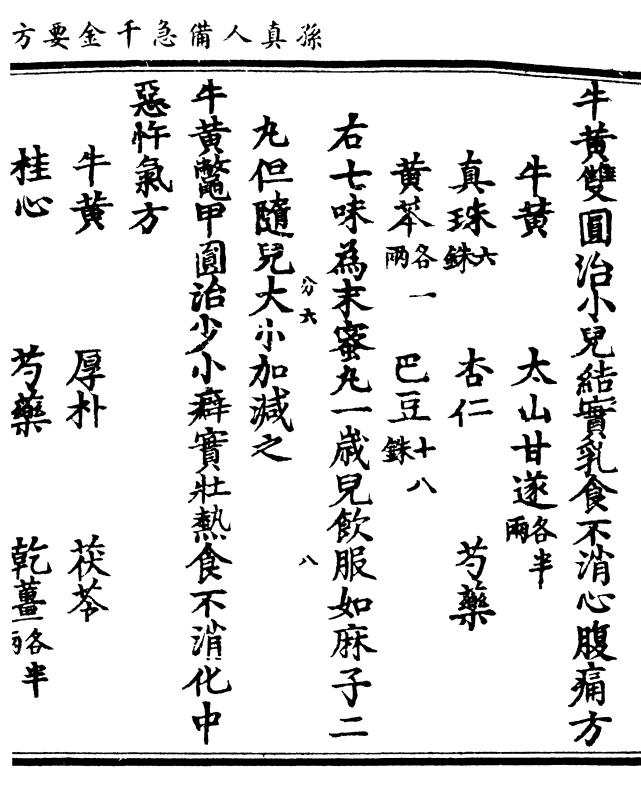 孫真人備急千金要方
牛黃雙圓治小兒結實乳食不消心腹痛方
牛黃　太山甘遂各半兩
真珠六銖　杏仁　芍藥
黃芩各一兩　巴豆十八銖
右七味為末蜜丸一歲兒飲服如麻子二
丸但隨兒大小加減之
分六　八
牛黃鼈甲圓治少小癖實壯熱食不消化中
惡忤氣方
牛黃　厚朴　茯苓
桂心　芍藥　乾薑各半兩